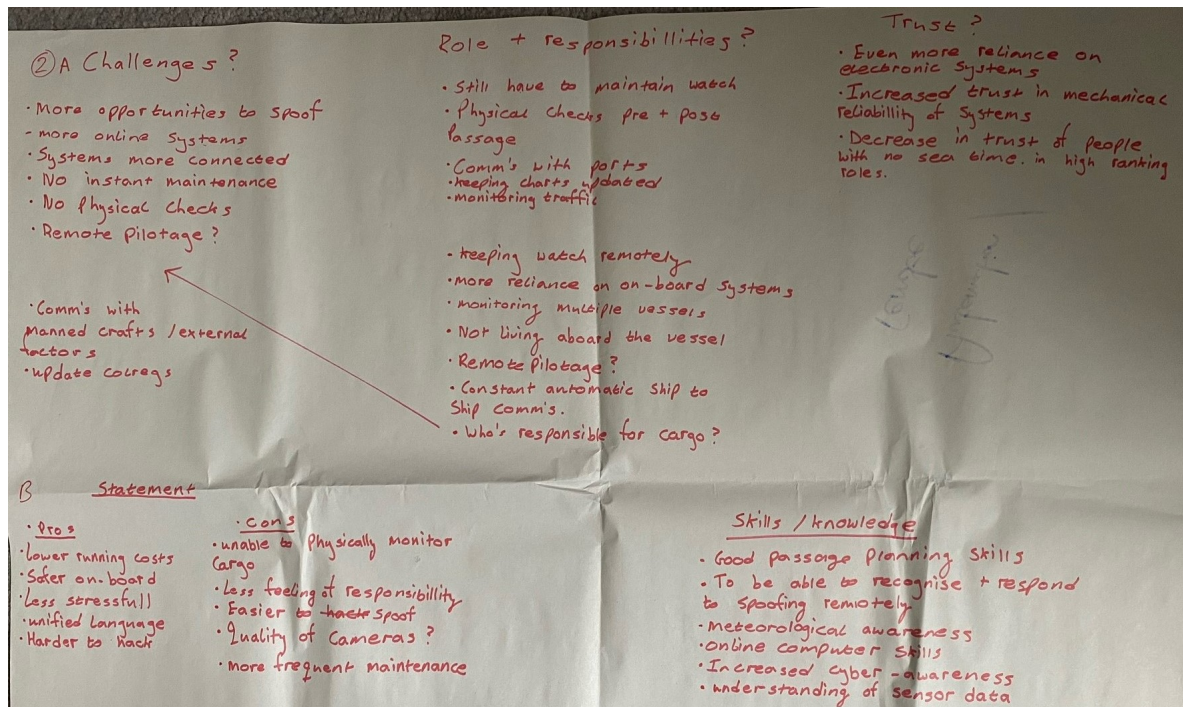 ② A Challenges?
· More opportunities to spoof
- more online systems
· Systems more connected
· No instant maintenance
· No Physical Checks
· Remote Pilotage?
· Comm's with
manned crafts / external
factors
· update colregs
Role + responsibillities?
· Still have to maintain watch
· Physical checks pre + post
Passage
· Comm's with ports
· keeping charts updated
· monitoring traffic
· keeping watch remotely
· more reliance on on-board systems
· monitoring multiple vessels
· Not living aboard the vessel
· Remote Pilotage?
· Constant automatic ship to
Ship comm's.
· Who's responsible for cargo?
Trust?
· Even more reliance on
electronic systems
· Increased trust in mechanical
reliabillity of systems
· Decrease in trust of people
with no sea time. in high ranking
roles.
B Statement
· Pros
· Lower running costs
· Safer on-board
· Less stressfull
· unified language
· Harder to hack
· cons
· unable to physically monitor
cargo
· Less feeling of responsibillity
· Easier to hack spoof
· Quality of cameras?
· more frequent maintenance
Skills / knowledge
· Good passage planning skills
· To be able to recognise + respond
to spoofing remotely
· meteorological awareness
· online computer skills
· Increased cyber-awareness
· understanding of sensor data